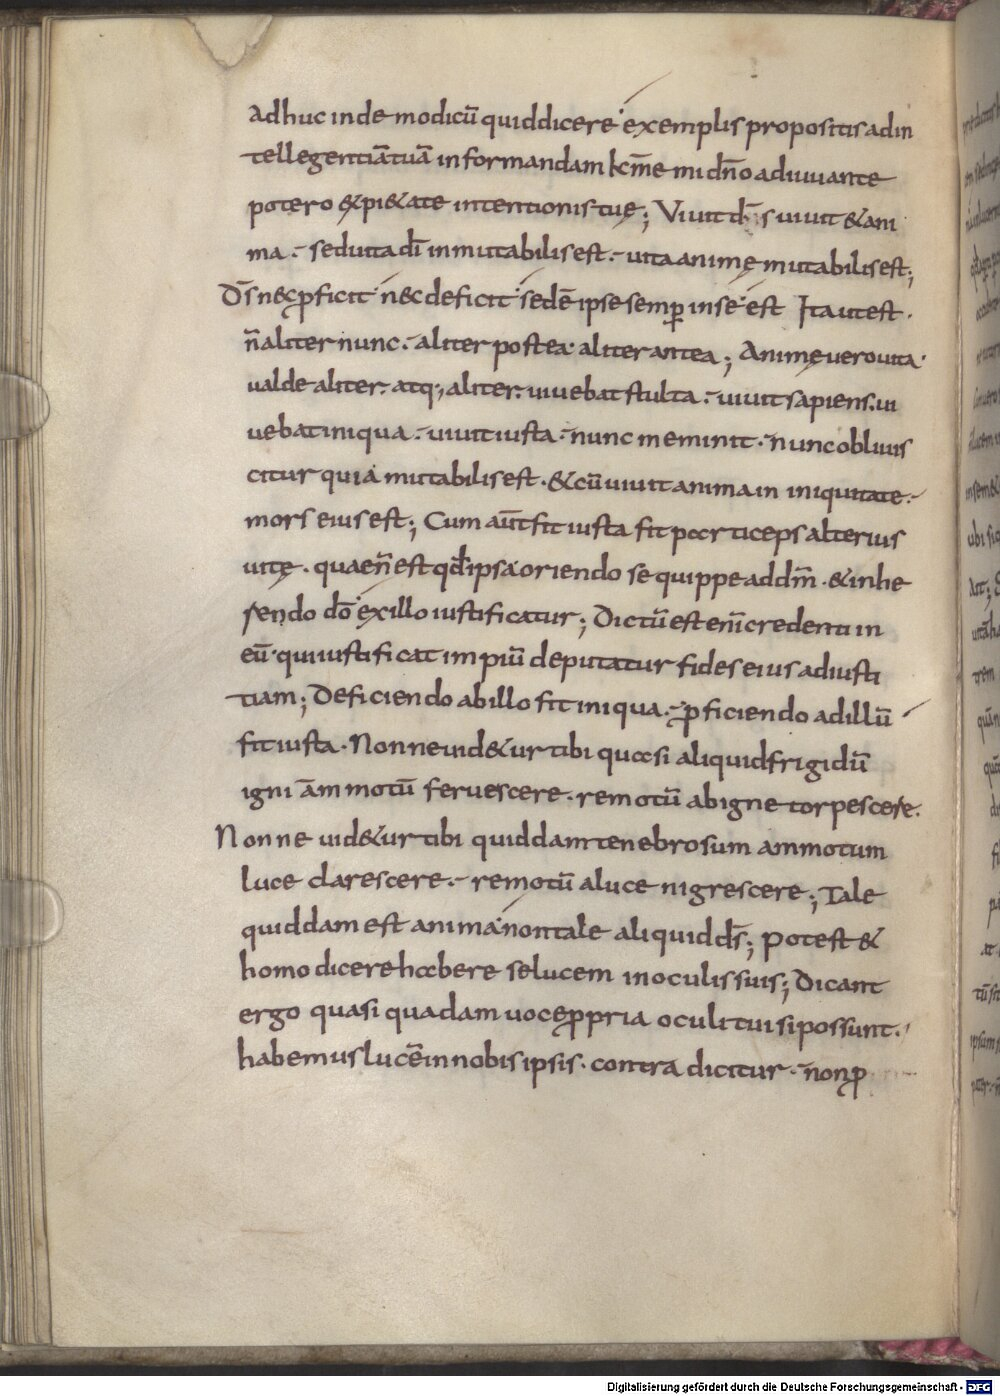 adhuc inde modicū quid dicere exemplis propositis ad in
tellegentiā tuā informandam kc̄me mi dn̄o adiuuante
potero & pi&ate intentionis tuę; Viuit d̄s uiuit & ani
ma. sed uita dī inmutabilis est. uita animę mutabilis est;
D̄s nec ꝓficit nec deficit sed ē ipse semꝑ in se est Ita ut est.
n̄ aliter nunc. aliter postea aliter antea; Animę uero uita
ualde aliter. atq; aliter. uiuebat stulta. uiuit sapiens. ui
uebat iniqua. uiuit iusta. nunc meminit. nunc obliuis
citur quia mutabilis est. & cū uiuit anima in iniquitate.
mors eius est; Cum aūt fit iusta fit particeps alterius
uitę. quae n̄ est qđ ipsa oriendo se quippe ad dn̄m. & inhe
rendo dō ex illo iustificatur; Dictū est enī credenti in
eū qui iustificat impiū deputatur fides eius ad iusti
tiam; Deficiendo ab illo fit iniqua. ꝓficiendo ad illū
fit iusta. Nonne uid&ur tibi quasi aliquid frigidū
igni āmmotū feruescere. remotū ab igne torpescere.
Nonne uid&ur tibi quiddam tenebrosum ammotum
luce clarescere. remotū a luce nigrescere; Tale
quiddam est anima non tale aliquid d̄s; potest &
homo dicere habere se lucem in oculis suis; Dicant
ergo quasi quadam uoce ꝓpria oculi tui si possunt.
habemus lucē in nobis ipsis. contra dicitur. non ꝓ
Digitalisierung gefördert durch die Deutsche Forschungsgemeinschaft - DFG